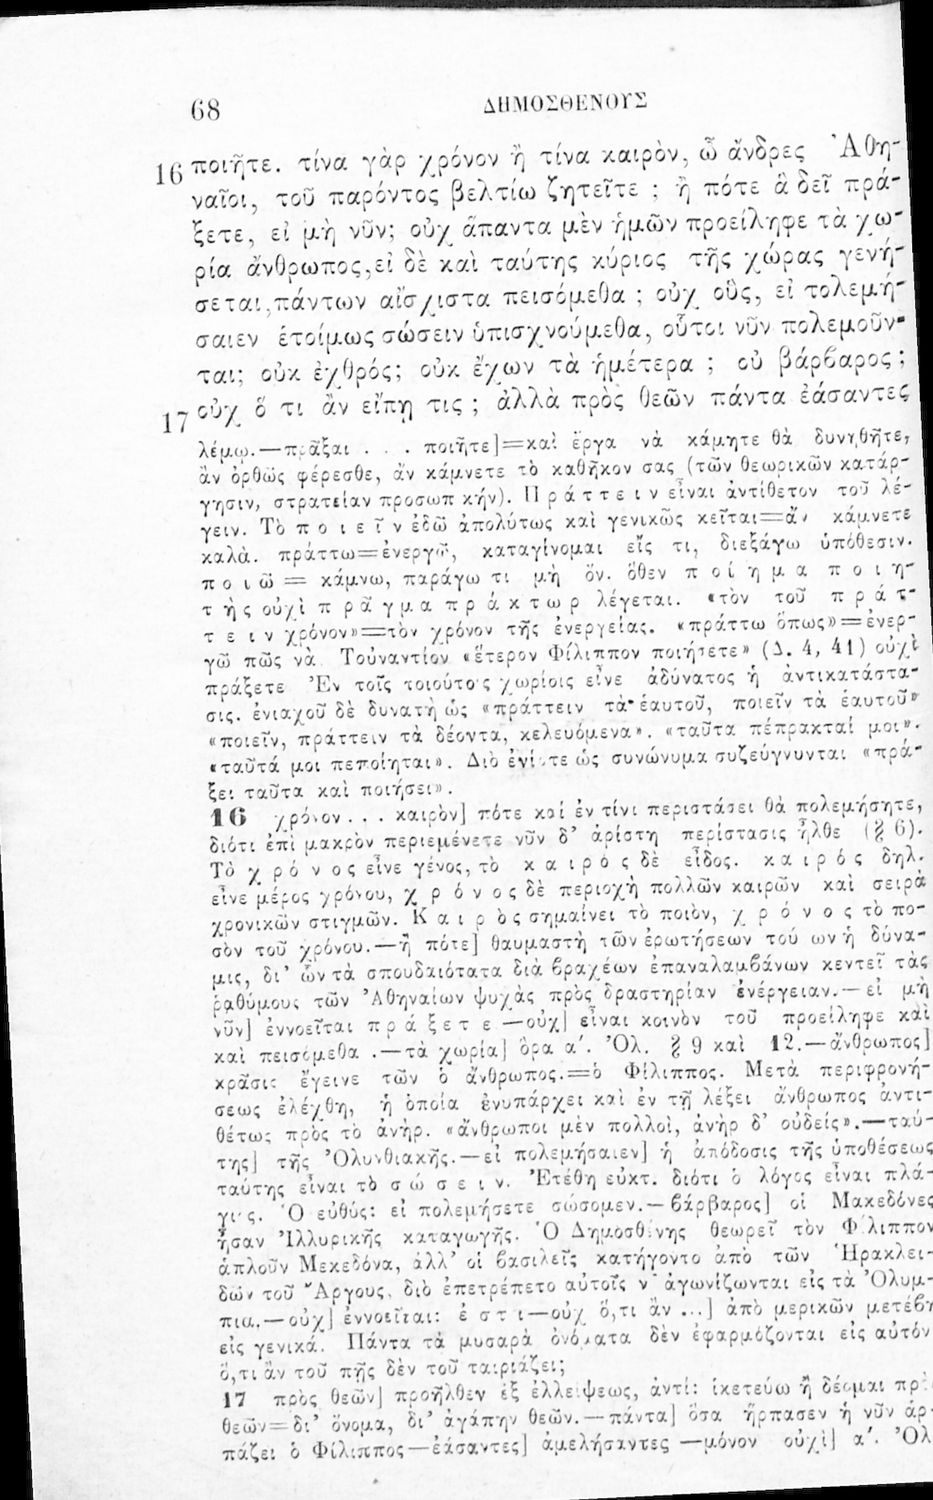 68 ΔΗΜΟΣΘΕΝΟΥΣ
16 ποιῆτε. τίνα γὰρ χρόνον ἢ τίνα καιρὸν, ὦ ἄνδρες Ἀθη-
ναῖοι, τοῦ παρόντος βελτίω ζητεῖτε ; ἢ πότε ἃ δεῖ πρά-
ξετε, εἰ μὴ νῦν; οὐχ ἅπαντα μὲν ἡμῶν προείληφε τὰ χω-
ρία ἄνθρωπος, εἰ δὲ καὶ ταύτης κύριος τῆς χώρας γενή-
σεται, πάντων αἴσχιστα πεισόμεθα ; οὐχ οὓς, εἰ τολεμή-
σαιεν ἑτοίμως σώσειν ὑπισχνούμεθα, οὗτοι νῦν πολεμοῦν-
ται; οὐκ ἐχθρός; οὐκ ἔχων τὰ ἡμέτερα ; οὐ βάρβαρος ;
17 οὐχ ὅ τι ἂν εἴπῃ τις ; ἀλλὰ πρὸς θεῶν πάντα ἐάσαντες
λέμῳ.—πρᾶξαι . . . ποιῆτε]=καὶ ἔργα νὰ κάμητε θὰ δυνηθῆτε,
ἂν ὀρθῶς φέρεσθε, ἂν κάμνετε τὸ καθῆκον σας (τῶν θεωρικῶν κατάρ-
γησιν, στρατείαν προσωπ κήν). Π ρ ά τ τ ε ι ν εἶναι ἀντίθετον τοῦ λέ-
γειν. Τὸ π ο ι ε ῖ ν ἐδῶ ἀπολύτως καὶ γενικῶς κεῖται=ἂν κάμνετε
καλὰ. πράττω=ἐνεργῶ, καταγίνομαι εἴς τι, διεξάγω ὑπόθεσιν.
π ο ι ῶ = κάμνω, παράγω τι μὴ ὄν. ὅθεν π ο ί η μ α π ο ι η-
τ ὴ ς οὐχὶ π ρ ᾶ γ μ α π ρ ά κ τ ω ρ λέγεται. «τὸν τοῦ π ρ ά τ-
τ ε ι ν χρόνον»=τὸν χρόνον τῆς ἐνεργείας. «πράττω ὅπως»=ἐνερ-
γῶ πῶς νὰ. Τοὐναντίον «ἕτερον Φίλιππον ποιήσετε» (Δ. 4, 41) οὐχὶ
πράξετε Ἐν τοῖς τοιούτοις χωρίοις εἶνε ἀδύνατος ἡ ἀντικατάστα-
σις. ἐνιαχοῦ δὲ δυνατὴ ὡς «πράττειν τὰ ἑαυτοῦ, ποιεῖν τὰ ἑαυτοῦ»
«ποιεῖν, πράττειν τὰ δέοντα, κελευόμενα». «ταῦτα πέπρακταί μοι».
«ταῦτά μοι πεποίηται». Διὸ ἐνίοτε ὡς συνώνυμα συζεύγνυνται «πρά-
ξει ταῦτα καὶ ποιήσει».
16 χρόνον . . . καιρὸν] πότε καί ἐν τίνι περιστάσει θὰ πολεμήσητε,
διότι ἐπὶ μακρὸν περιεμένετε νῦν δ' ἀρίστη περίστασις ἦλθε (§ 6).
Τὸ χ ρ ό ν ο ς εἶνε γένος, τὸ κ α ι ρ ὸ ς δὲ εἶδος. κ α ι ρ ό ς δηλ.
εἶνε μέρος χρόνου, χ ρ ό ν ο ς δὲ περιοχὴ πολλῶν καιρῶν καὶ σειρὰ
χρονικῶν στιγμῶν. Κ α ι ρ ὸ ς σημαίνει τὸ ποιὸν, χ ρ ό ν ο ς τὸ πο-
σὸν τοῦ χρόνου.—ἢ πότε] θαυμαστὴ τῶν ἐρωτήσεων τού ων ἡ δύνα-
μις, δι' ὧν τὰ σπουδαιότατα διὰ βραχέων ἐπαναλαμβάνων κεντεῖ τὰς
ῥαθύμους τῶν Ἀθηναίων ψυχὰς πρὸς δραστηρίαν ἐνέργειαν.—εἰ μὴ
νῦν] ἐννοεῖται π ρ ά ξ ε τ ε —οὐχ] εἶναι κοινὸν τοῦ προείληφε καὶ
καὶ πεισόμεθα .—τὰ χωρία] ὅρα α΄. Ὀλ. § 9 καὶ 12.—ἄνθρωπος]
κρᾶσις ἔγεινε τῶν ὁ ἄνθρωπος.=ὁ Φίλιππος. Μετὰ περιφρονή-
σεως ἐλέχθη, ἡ ὁποία ἐνυπάρχει καὶ ἐν τῇ λέξει ἄνθρωπος ἀντι-
θέτως πρὸς τὸ ἀνήρ. «ἄνθρωποι μὲν πολλοὶ, ἀνὴρ δ' οὐδείς».—ταύ-
της] τῆς Ὀλυνθιακῆς.—εἰ πολεμήσαιεν] ἡ ἀπόδοσις τῆς ὑποθέσεως
ταύτης εἶναι τὸ σ ώ σ ε ι ν. Ἐτέθη εὐκτ. διότι ὁ λόγος εἶναι πλά-
γιος. Ὁ εὐθύς: εἰ πολεμήσετε σώσομεν.—βάρβαρος] οἱ Μακεδόνες
ἦσαν Ἰλλυρικῆς καταγωγῆς. Ὁ Δημοσθένης θεωρεῖ τὸν Φίλιππον
ἁπλοῦν Μακεδόνα, ἀλλ' οἱ βασιλεῖς κατήγοντο ἀπὸ τῶν Ἡρακλει-
δῶν τοῦ Ἄργους, διὸ ἐπετρέπετο αὐτοῖς ν' ἀγωνίζωνται εἰς τὰ Ὀλυμ-
πια.—οὐχ] ἐννοεῖται: ἐ σ τ ι—οὐχ ὅ,τι ἂν ...] ἀπὸ μερικῶν μετέβη
εἰς γενικά. Πάντα τὰ μυσαρὰ ὀνόματα δὲν ἐφαρμόζονται εἰς αὐτόν
ὅ,τι ἂν τοῦ πῇς δὲν τοῦ ταιριάζει;
17 πρὸς θεῶν] προῆλθεν ἐξ ἐλλείψεως, ἀντί: ἱκετεύω ἢ δέομαι πρὸς
θεῶν=δι' ὄνομα, δι' ἀγάπην θεῶν.—πάντα] ὅσα ἥρπασεν ἡ νῦν ἁρ-
πάζει ὁ Φίλιππος—ἐάσαντες] ἀμελήσαντες —μόνον οὐχὶ] α΄. Ὀλ